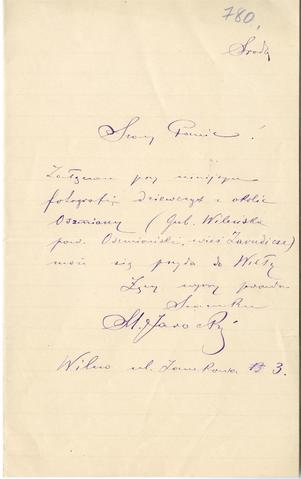 780.
Środa
Szan Panie!
Załączam przy niniejszym
fotografię dziewcząt z okolic
Oszmiany (Gub. Wileńska
pow. Oszmiański, wieś Zarudicze)
może się przyda do Wisły
Łączę wyrazy prawdz.
Szacunku
Wilno ul. Zamkowa № 3.